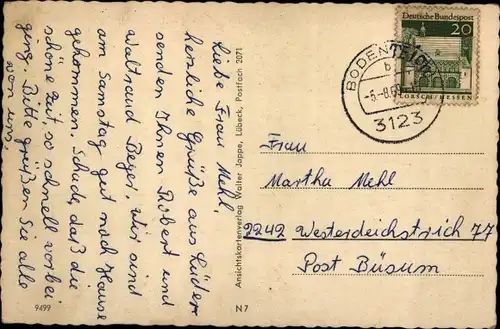 Liebe Frau Mehl,
herzliche Grüße aus Lüder
senden Ihnen Hubert und
Waltraud Beyer, wir sind
am Samstag gut nach Hause
gekommen. Schade, daß die
schöne Zeit so schnell vorbei
ging. Bitte grüßen Sie alle
von uns.
9499
N 7
Ansichtskartenverlag Walter Jappe, Lübeck, Postfach 2071
Deutsche Bundespost
20
LORSCH/HESSEN
BODENTEICH
b
-6.-8.69
3123
Frau
Martha Mehl
2242 Westerdeichstrich 77
Post Büsum